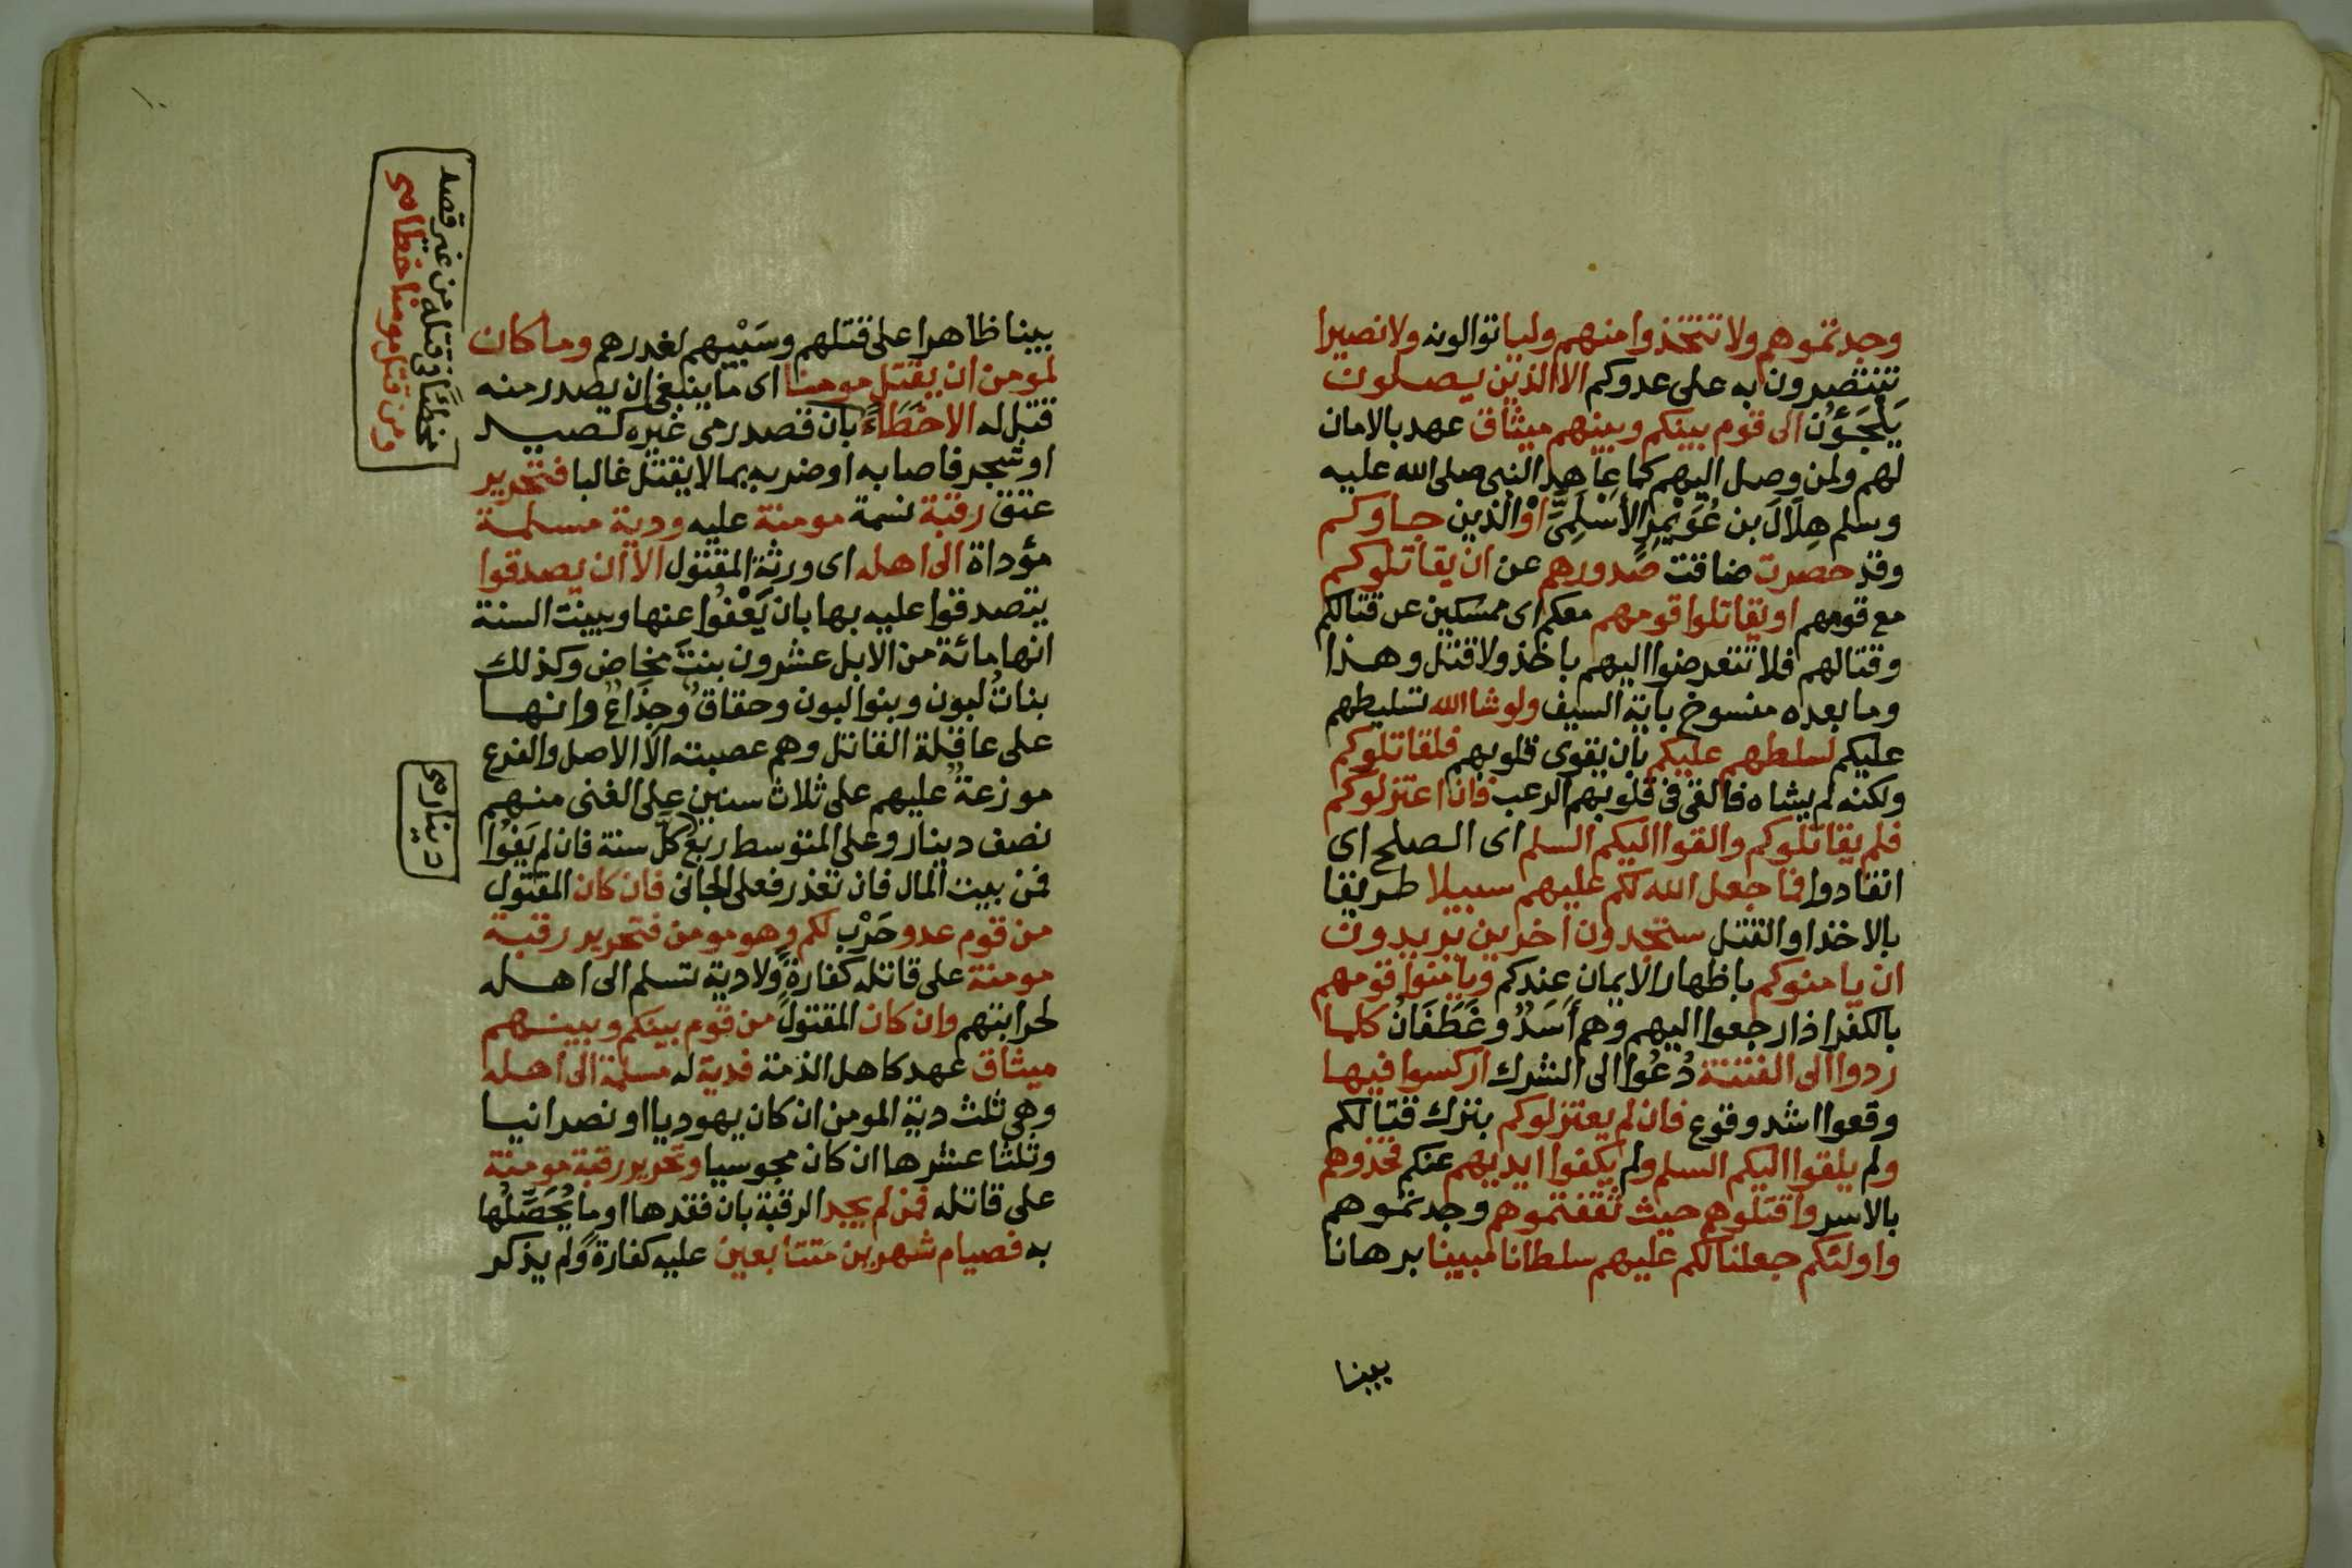 وجدتموهم ولا تتخذوا منهم وليا توالونه ولا نصيرا
تنتصرون به على عدوكم الا الذين يصلون
يَلْجَؤُن الى قوم بينكم وبينهم ميثاق عهد بالامان
لهم ولمن وصل اليهم كما عاهد النبى صلى الله عليه
وسلم هِلَالَ بن عُوَيْمِرِ الأَسْلَمِىَّ اوْ الذين جاوكم
وقد حصرت ضاقت صدورهم عن ان يقاتلوكم
مع قومهم او يقاتلوا قومهم معكم اى ممسكين عن قتالكم
وقتالهم فلا تتعرضوا اليهم باخذ ولا قتل وهذا
وما بعده منسوخ باية السيف ولو شا الله تسليطهم
عليكم لسلطهم عليكم بان يقوى قلوبهم فلقاتلوكم
ولكنه لم يشاه فالقى فى قلوبهم الرعب فان اعتزلوكم
فلم يقاتلوكم والقوا اليكم السلم اى الصلح اى
انقادوا فما جعل الله لكم عليهم سبيلا طريقا
بالاخذ او القتل ستجدون اخرين يريدون
ان يامنوكم باظهار الايمان عندكم ويامنوا قومهم
بالكفر اذا رجعوا اليهم وهم أَسَدٌ وغَطَفَانُ كلما
ردوا الى الفتنة دُعُوا الى الشرك اركسوا فيها
وقعوا اشد وقوع فان لم يعتزلوكم بترك قتالكم
ولم يلقوا اليكم السلم ولم يكفوا ايديهم عنكم فخذوهم
بالاسر واقتلوهم حيث ثقفتموهم وجدتموهم
واولئكم جعلنا لكم عليهم سلطانا مبينا برهانا
بينا
بينا ظاهرا على قتلهم وسَبْيِهم لغدرهم وما كان
لمومن ان يقتل مومنا اى ما ينبغى ان يصدر منه
قتل له الا خَطَاءً بان قصد رمى غيره كصيد
او شجر فاصابه او ضربه بما لا يقتل غالبا فتحرير
عتق رقبة نسمة مومنة عليه ودية مسلمة
مؤداة الى اهله اى ورثة المقتول الا ان يصدقوا
يتصدقوا عليه بها بان يَعْفُوا عنها وبينت السنة
انها مائة من الابل عشرون بنتَ مخاض وكذلك
بناتُ لبون وبنوا لبون وحقاقٌ وجِذَاعٌ وانها
على عاقلة القاتل وهم عصبته الا الاصل والفرع
موزعةٌ عليهم على ثلاث سنين على الغنى منهم
نصف دينار وعلى المتوسط ربع كل سنة فان لم يَفُوا
فمن بيت المال فان تعذر فعلى الجانى فان كان المقتول
من قوم عدو حَرْبٍ لكم وهو مومن فتحرير رقبة
مومنة على قاتله كفارةً ولا دية تسلم الى اهله
لحرابتهم وان كان المقتول من قوم بينكم وبينهم
ميثاق عهد كاهل الذمة فدية له مسلمة الى اهله
وهى ثلث دية المومن ان كان يهوديا او نصرانيا
وثلثا عشرها ان كان مجوسيا وتحرير رقبة مومنة
على قاتله فمن لم يجد الرقبة بان فقدها او ما يُحَصِّلُها
به فصيام شهرين متتابعين عليه كفارةً ولم يذكر
مخطئًا فى قتله من غير قصد
ومن قتل مومنا خطا
دينار
١٠